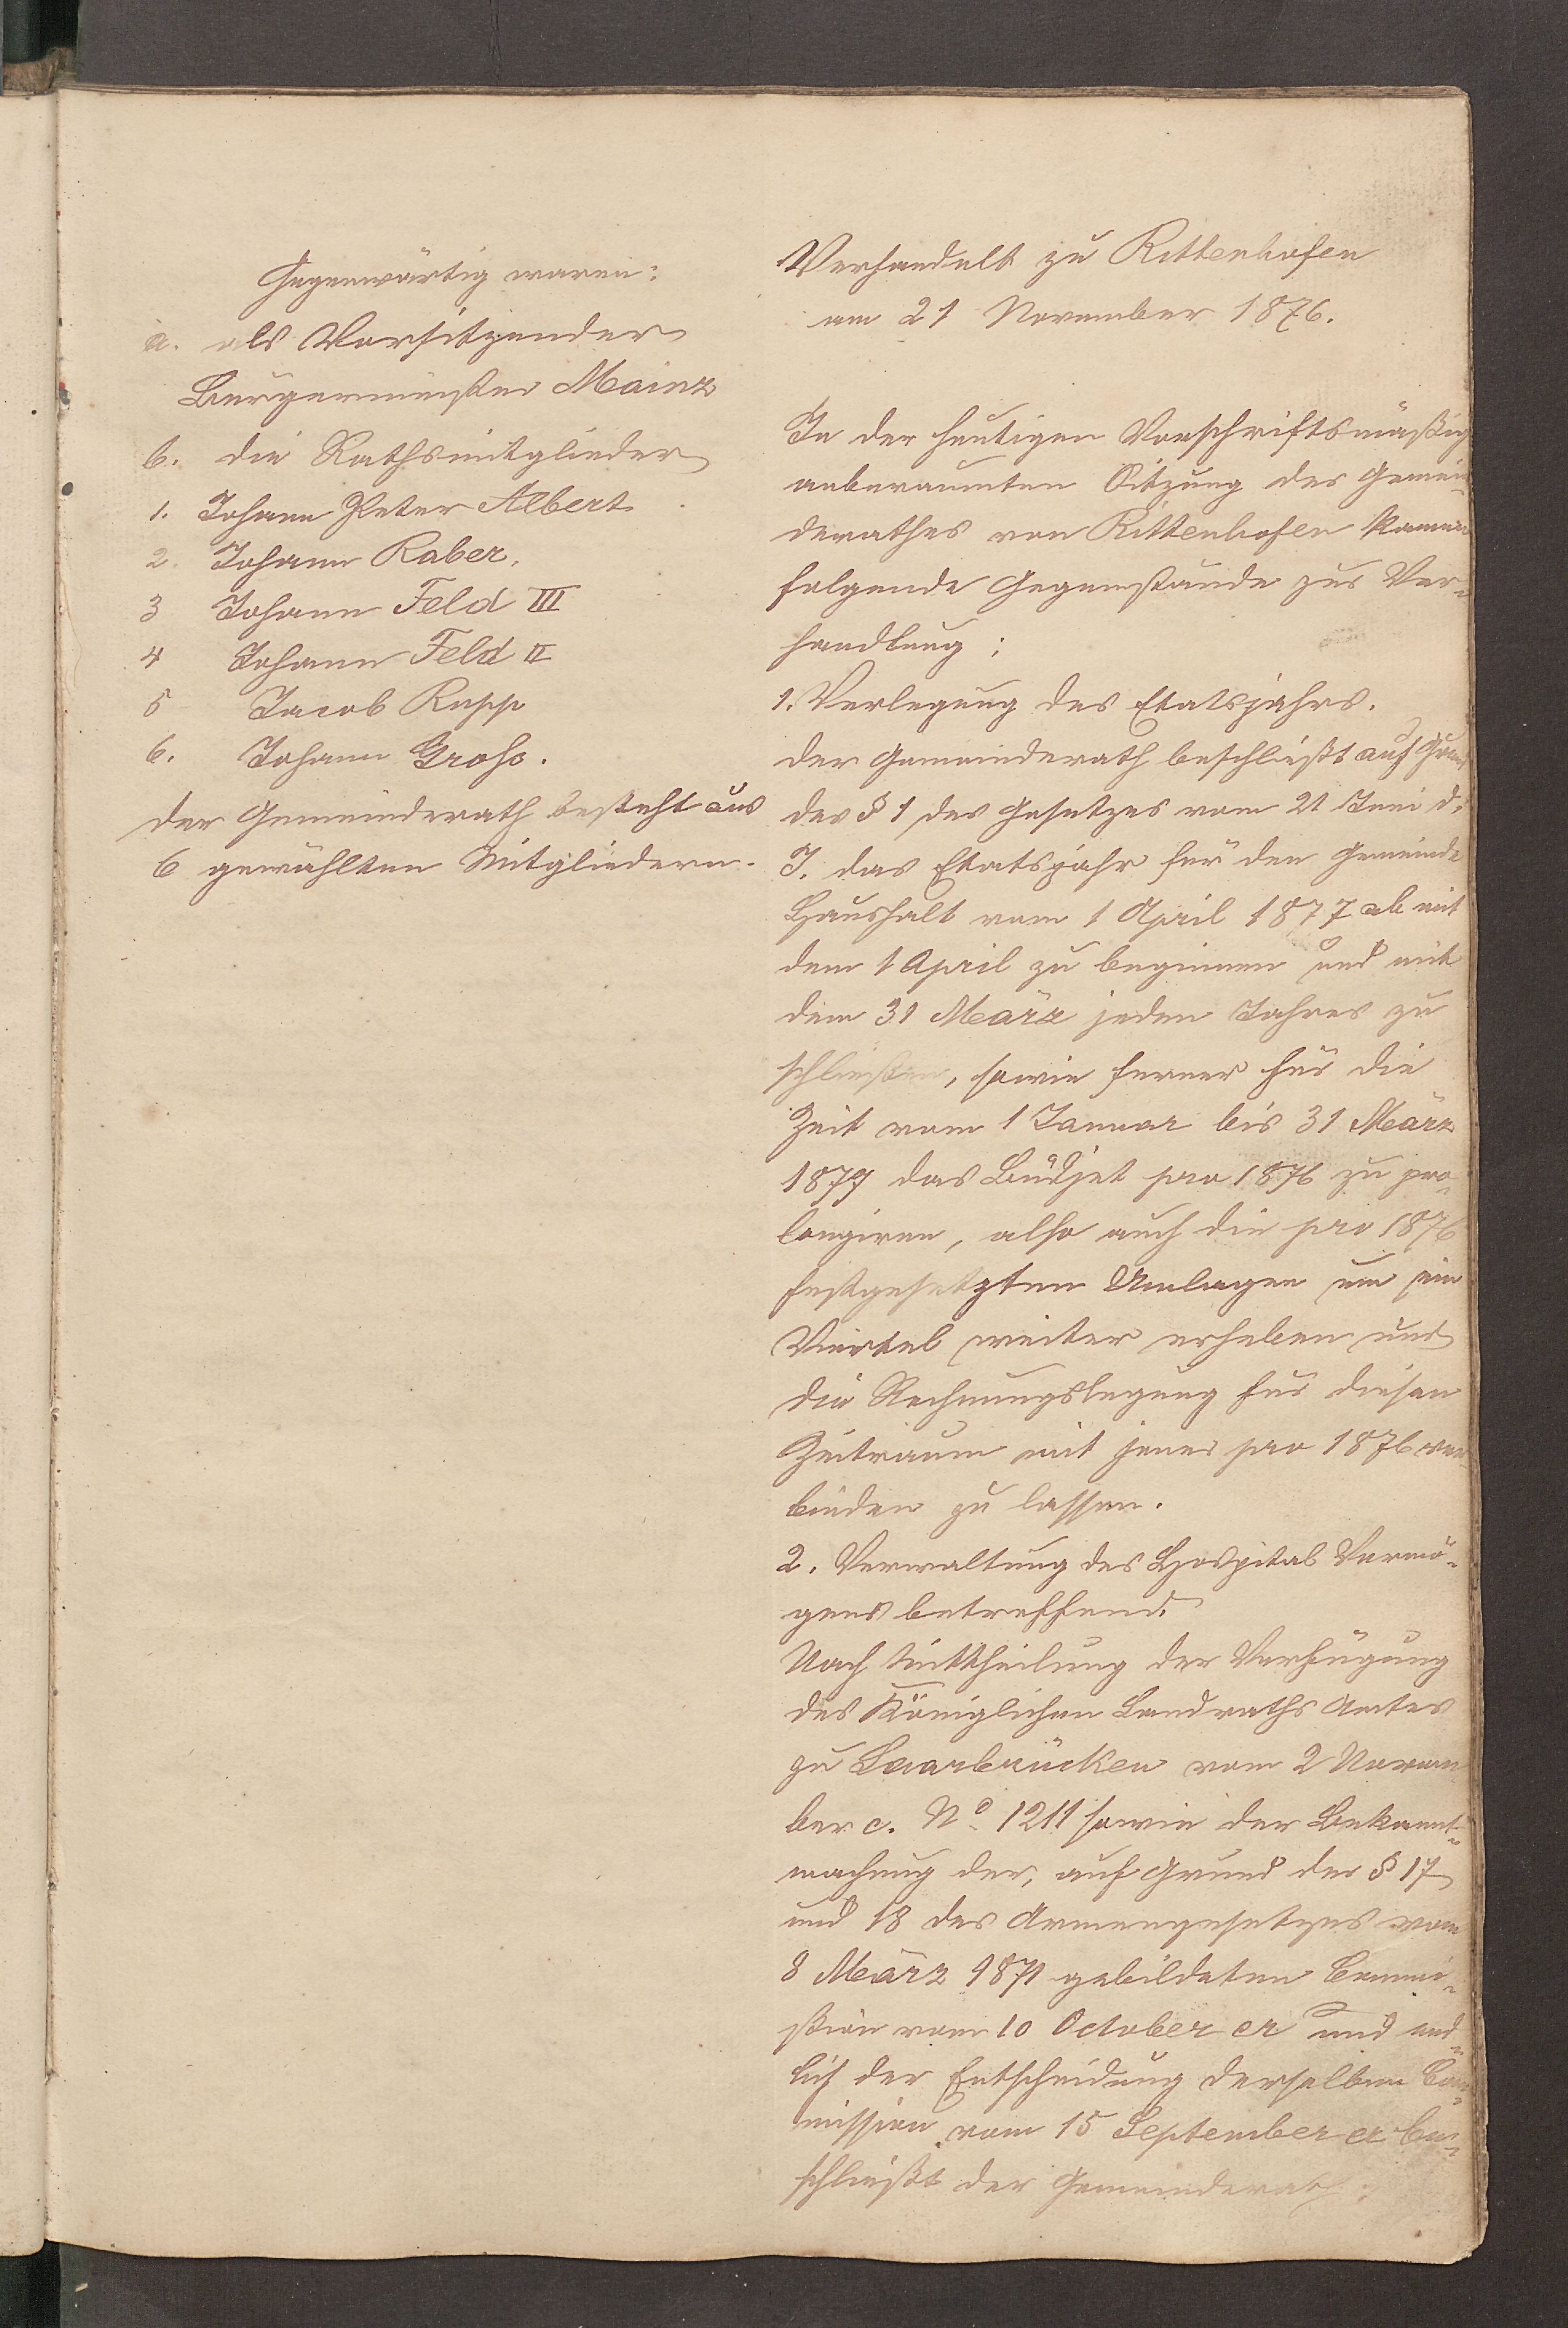 Gegenwärtig waren:
a. als Vorsitzender
Bürgermeister Mainz
b. die Rathsmitglieder
1. Johann Peter Albert
2. Johann Raber.
3 Johann Feld III
4 Johann Feld II
5 Jacob Rupp
6. Johann Groß.
Der Gemeinderath besteht aus
6 gewählten Mitgliedern.
Verhandelt zu Rittenhofen
am 21 November 1876.
In der heutigen Vorschriftsmäßig
anberaumten Sitzung des Gemein-
derathes von Rittenhofen kamen
folgende Gegenstände zur Ver-
handlung:
1. Verlegung des Etatsjahrs.
Der Gemeinderath beschließt auf Grund
des § 1 des Gesetzes vom 21 Juni d.
J. das Etatsjahr für den Gemeinde
Haushalt vom 1 April 1877 ab mit
dem 1 April zu beginnen und mit
dem 31 März jeden Jahres zu
schließen, sowie ferner für die
Zeit vom 1 Januar bis 31 März
1877 das Büdjet pro 1876 zu pro-
longiren, also auch die pro 1876
festgesetzten Umlagen um ein
Viertel weiter erheben und
die Rechnungslegung für diesen
Zeitraum mit jener pro 1876 ver
binden zu lassen.
2. Verwaltung des Hospital Vermö-
gens betreffend.
Nach Mittheilung der Verfügung
des Königlichen Landraths Amtes
zu Saarbrücken vom 2 Novem
ber c. No. 1211 sowie der Bekannt-
machung der, auf Grund der § 17
und 18 des Armengesetzes vom
8 März 1871 gebildeten Commi-
ßion vom 10 October cr und end-
lich der Entscheidung derselben Com-
mission vom 15 September cr be-
schließt der Gemeinderath: